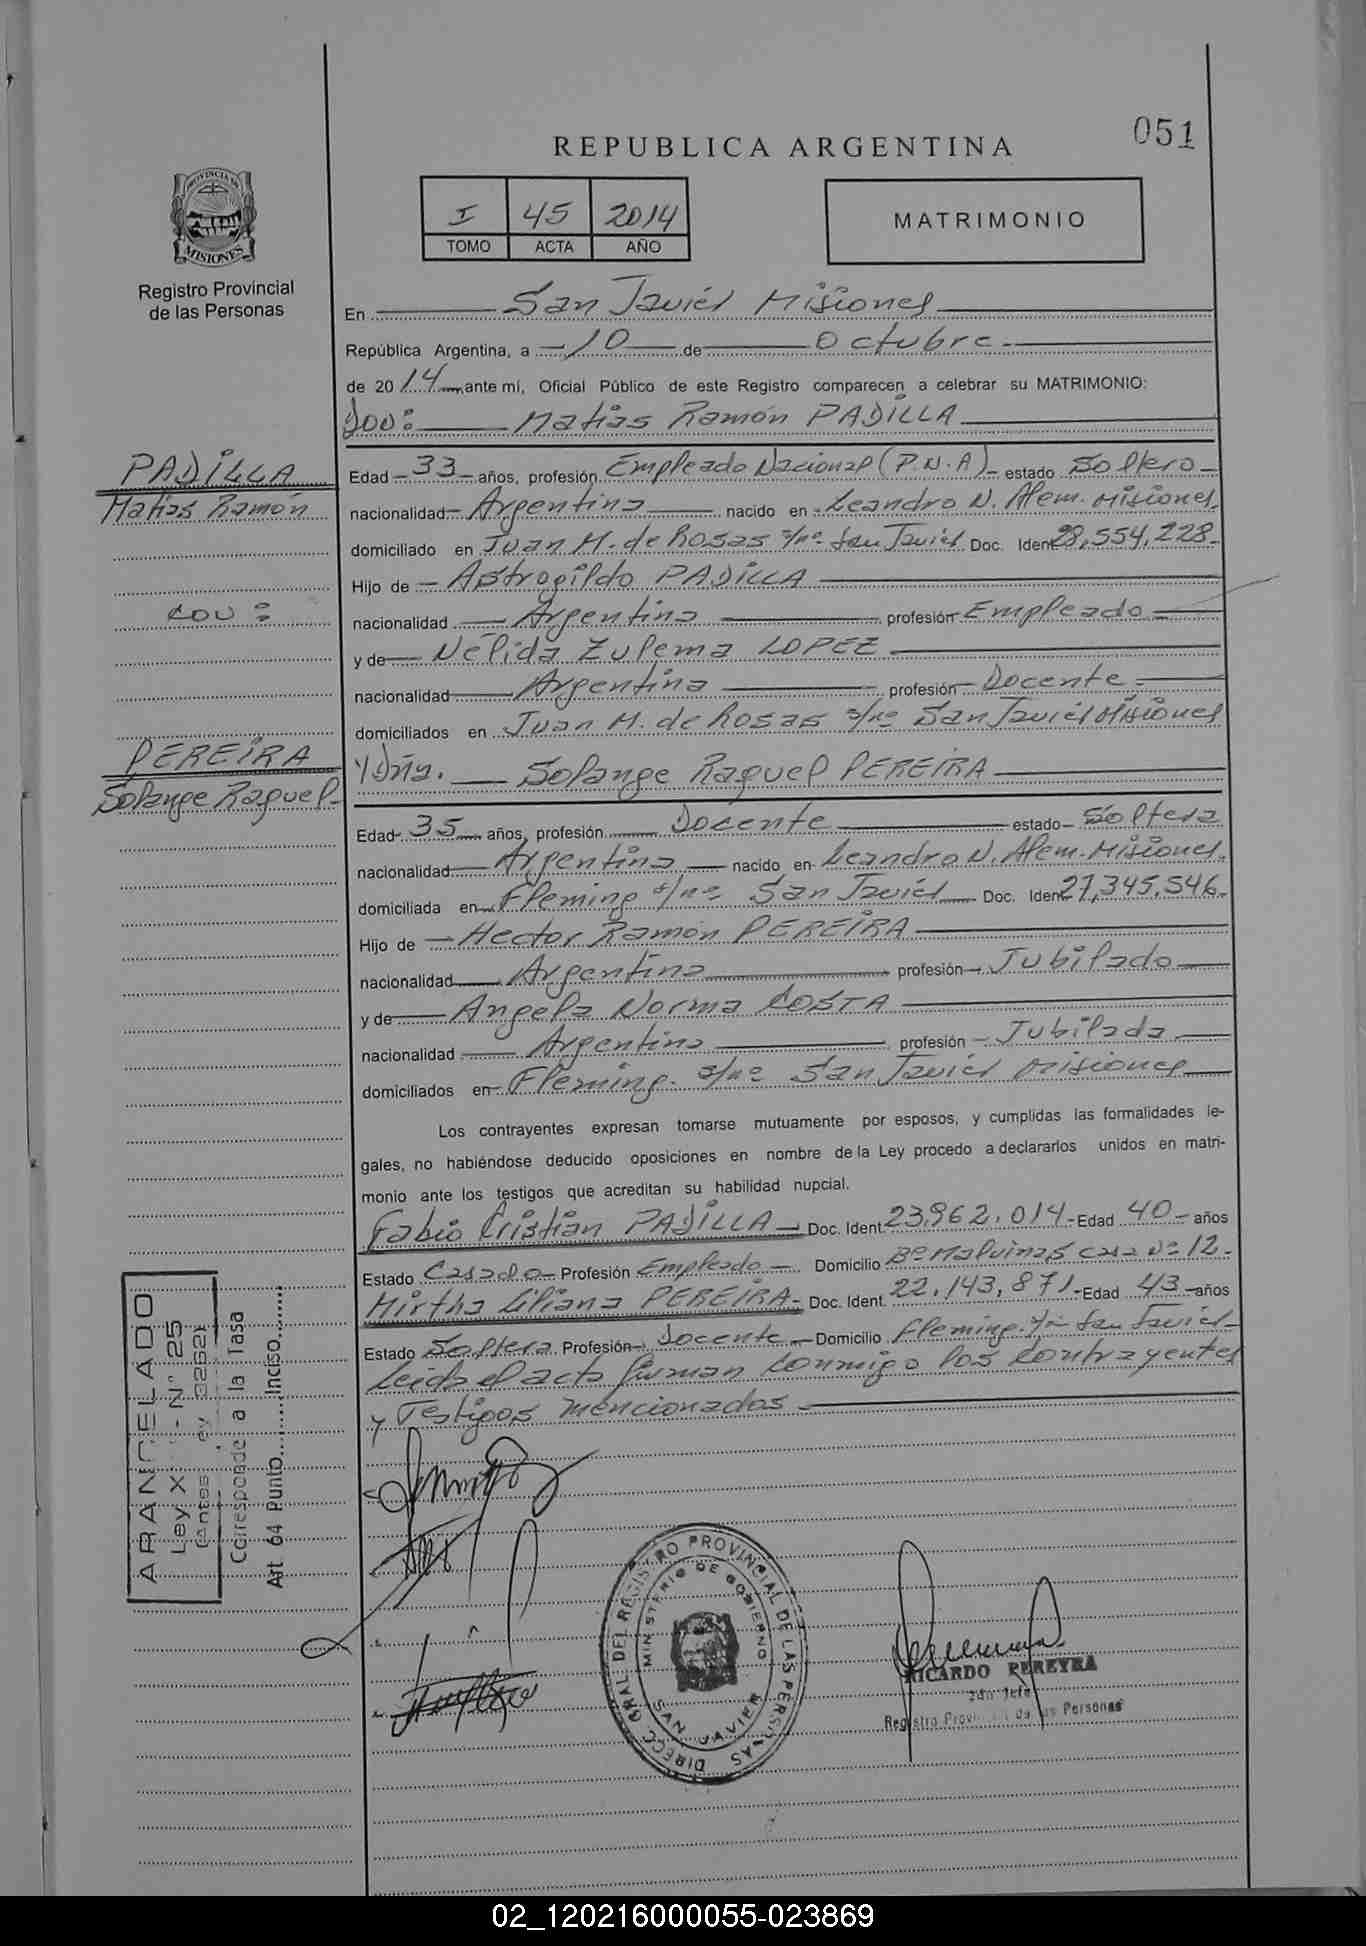 051
REPUBLICA ARGENTINA
PROVINCIA DE
MISIONES
Registro Provincial
de las Personas
I 45 2014
TOMO ACTA AÑO
MATRIMONIO
En San Javier Misiones
República Argentina, a 10 de Octubre
de 2014 ante mí, Oficial Público de este Registro comparecen a celebrar su MATRIMONIO:
Don: Matias Ramón PADILLA
PADILLA
Matias Ramón
con:
PEREIRA
Solange Raquel
Edad 33 años, profesión Empleado Nacional (P.N.A) estado Soltero
nacionalidad Argentina nacido en Leandro N. Alem. Misiones
domiciliado en Juan M. de Rosas s/nº San Javier Doc. Ident 28,554,228
Hijo de Astrogildo PADILLA
nacionalidad Argentina profesión Empleado
y de Nélida Zulema LOPEZ
nacionalidad Argentina profesión Docente
domiciliados en Juan M. de Rosas s/nº San Javier Misiones
y Dña. Solange Raquel PEREIRA
Edad 35 años, profesión Docente estado Soltera
nacionalidad Argentina nacido en Leandro N. Alem. Misiones
domiciliada en Fleming s/nº San Javier Doc. Ident 27,345,546
Hijo de Hector Ramón PEREIRA
nacionalidad Argentina profesión Jubilado
y de Angela Norma COSTA
nacionalidad Argentina profesión Jubilada
domiciliados en Fleming. s/nº San Javier Misiones
Los contrayentes expresan tomarse mutuamente por esposos, y cumplidas las formalidades le-
gales, no habiéndose deducido oposiciones en nombre de la Ley procedo a declararlos unidos en matri-
monio ante los testigos que acreditan su habilidad nupcial.
Fabio Cristian PADILLA Doc. Ident 23,962,014 Edad 40 años
Estado Casado Profesión Empleado Domicilio Bº Malvinas casa Nº 12
Mirtha Liliana PEREIRA Doc. Ident. 22,143,871 Edad 43 años
Estado Soltera Profesión Docente Domicilio Fleming. s/n San Javier
Leida el acta firman conmigo los contrayentes
y Testigos mencionados
ARANCELADO
Ley X - Nº 25
(antes ley 3252)
Corresponde a la Tasa
Art. 64 Punto........Inciso........
DIRECC. GRAL DEL REGISTRO PROVINCIAL DE LAS PERSONAS
MINISTERIO DE GOBIERNO
SAN JAVIER
RICARDO PEREYRA
2do Jefe
Registro Provincial de las Personas
02_120216000055-023869